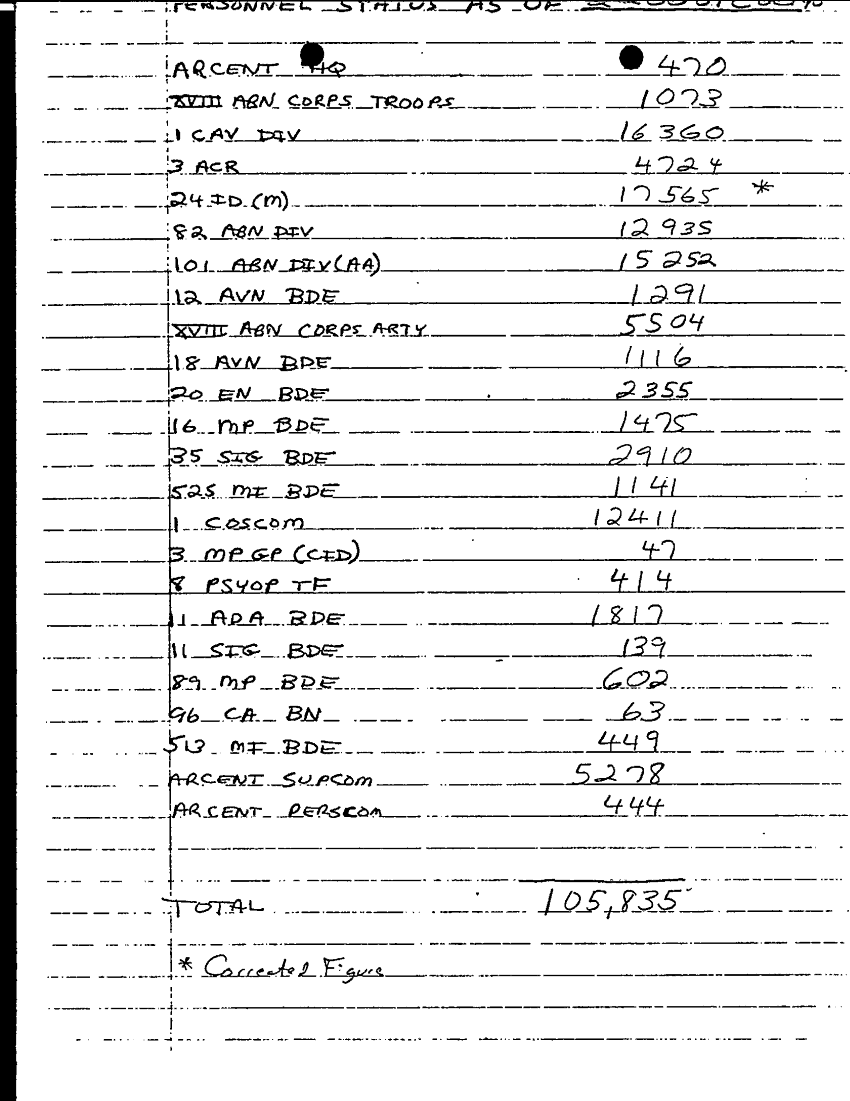 PERSONNEL STATUS AS OF
ARCENT HQ 470
XVIII ABN CORPS TROOPS 1073
1 CAV DIV 16360
3 ACR 4724
24 ID (M) 17565 *
82 ABN DIV 12935
101 ABN DIV (AA) 15252
12 AVN BDE 1291
XVIII ABN CORPS ARTY 5504
18 AVN BDE 1116
20 EN BDE 2355
16 MP BDE 1475
35 SIG BDE 2910
525 MI BDE 1141
1 COSCOM 12411
3 MP GP (CID) 47
8 PSYOP TF 414
11 ADA BDE 1817
11 SIG BDE 139
89 MP BDE 602
96 CA BN 63
513 MI BDE 449
ARCENT SUPCOM 5278
ARCENT PERSCOM 444
TOTAL 105,835
* Corrected Figure